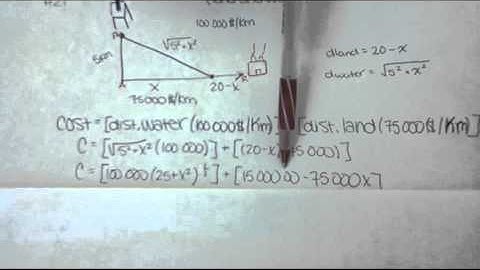 #21
100 000$/Km
5km
√5²+x²
x
20-x
75000$/Km
dland = 20 - x
dwater = √5² + x²
COST = [dist. water (100 000$/Km)] [dist. land (75 000$/Km)]
C = [√5²+x² (100 000)] + [(20-x) 5 000)]
C = [100 000 (25+x²)^½] + [15 000 00 - 75 000x]